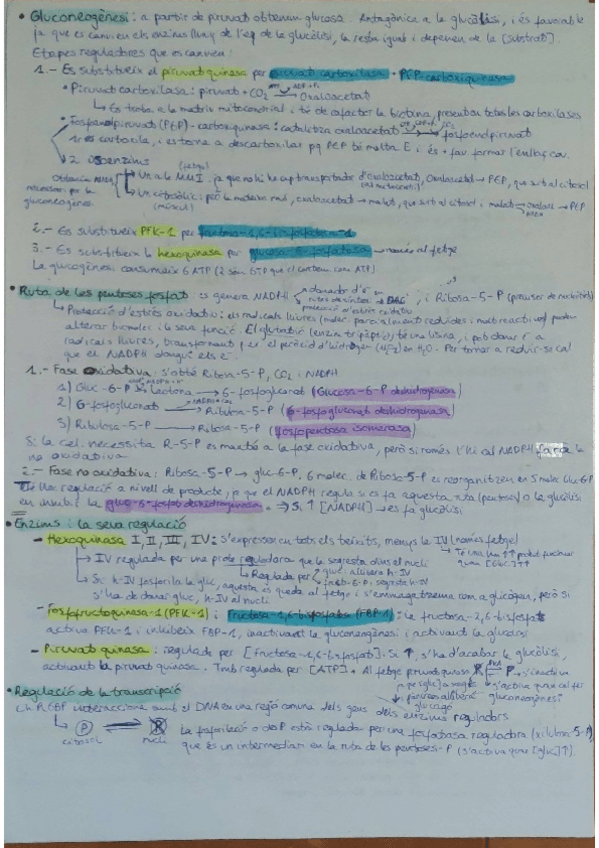 • Gluconeogènesi: a partir de piruvat obtenim glucosa. Antagònica a la glucòlisi, i és favorable
ja que es canvien els enzims lluny de l'eq de la glucòlisi, la resta igual i depenen de la [substrat].
Etapes reguladores que es canvien:
1.- Es substitueix el piruvat quinasa per piruvat carboxilasa + PEP-carboxiquinasa
• Piruvat carboxilasa: piruvat + CO2 → Oxaloacetat
↳ Es troba a la matriu mitocondrial i té de cofactor la biotina, present en totes les carboxilases
Fosfoenolpiruvat (PEP)-carboxiquinasa: catalitza oxaloacetat → fosfoenolpiruvat
1r es carboxila, i es torna a descarboxilar pq PEP té molta E i és + fav formar l'enllaç cov.
2 isoenzims
(fetge)
Un a la MMI: ja que no hi ha transportador d'oxaloacetat, Oxaloacetat → PEP, que surt al citosol
Un citosòlic: per la mateixa raó, oxaloacetat → malat, que surt al citosol i malat → oxalace → PEP
(múscul)
2.- Es substitueix PFK-1 per fructosa-1,6-bisfosfatasa-1
3.- Es substitueix la hexoquinasa per glucosa-6-fosfatasa → només al fetge
La glucogènesi consumeix 6 ATP (2 són GTP que el contem com ATP)
• Ruta de les pentoses fosfat: es genera NADPH, i Ribosa-5-P (precursor de nucleòtids)
↳ Protecció d'estrès oxidatiu: els radicals lliures (molec parcialment reduïdes i molt reactives) poden
alterar biomolec i la seva funció. El glutatió (enzim tripèptid) té una lisina, i pot donar e- a
radicals lliures, transformant per el peròxid d'hidrogen (H2O2) en H2O. Per tornar a reduir-se cal
que el NADPH dongui els e-.
1.- Fase oxidativa: S'obté Ribosa-5-P, CO2 i NADPH
1) Gluc-6-P → Lactona → 6-fosfogluconat (Glucosa-6-P deshidrogenasa)
2) 6-fosfogluconat → Ribulosa-5-P (6-fosfogluconat deshidrogenasa)
3) Ribulosa-5-P → Ribosa-5-P (fosfopentosa isomerasa)
Si la cel. necessita R-5-P es manté a la fase oxidativa, però si només l'hi cal NADPH farà la
no oxidativa
2.- Fase no oxidativa: Ribosa-5-P → gluc-6-P. 6 molec. de Ribosa-5-P es reorganitzen en 5 molec Gluc-6-P
Hi ha regulació a nivell de producte, ja que el NADPH regula si es fa aquesta ruta (pentoses) o la glucòlisi
en inhibir la gluc-6-fosfat deshidrogenasa. ⇒ Si ↑ [NADPH] → es fa glucòlisi
• Enzims: la seva regulació
- Hexoquinasa I, II, III, IV: S'expressa en tots els teixits, menys la IV (només fetge)
↳ IV regulada per una prote reguladora que la segresta dins el nucli
↳ Regulada per
Si h-IV fosforila la gluc, aquesta es queda al fetge i s'emmagatzema com a glicògen, però si
s'ha de donar gluc, h-IV al nucli
- Fosfofructoquinasa-1 (PFK-1) i Fructosa-1,6-bisfosfatasa (FBP-1): la fructosa-2,6-bisfosfat
activa PFK-1 i inhibeix FBP-1, inactivant la gluconeogènesi i activant la glucòlisi
- Piruvat quinasa: regulada per [fructosa-1,6-bisfosfat]. Si ↑, s'ha d'acabar la glucòlisi,
activant la piruvat quinasa. Tmb regulada per [ATP]. • Al fetge piruvat quinasa
• Regulació de la transcripció
interacciona amb el DNA en una regió comuna dels gens dels enzims reguladors
citosol
nucli
La fosforilació o desP està regulada per una fosfatasa reguladora (xilulosa-5-P),
que és un intermediari en la ruta de les pentoses-P (s'activa quan [gluc]↑).